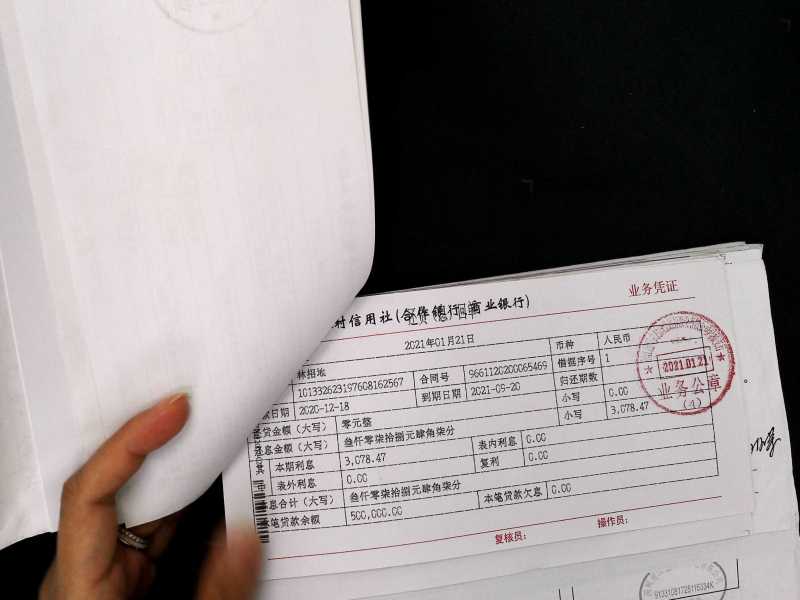 村信用社(合作银行 商业银行)
业务凭证
2021年01月21日
币种 人民币
林招地
101332623197608162567 合同号 9661120200065469 借据序号 1
款日期 2020-12-18 到期日期 2021-09-20 归还期数
贷金额（大写） 零元整 小写 0.00
息金额（大写） 叁仟零柒拾捌元肆角柒分 小写 3,078.47
其 本期利息 3,078.47 表内利息 0.00
中 表外利息 0.00 复利 0.00
息合计（大写） 叁仟零柒拾捌元肆角柒分 本笔贷款欠息 0.00
本笔贷款余额 500,000.00
复核员： 操作员：
2021.01.21
业务公章
(4)
91331081728116334K